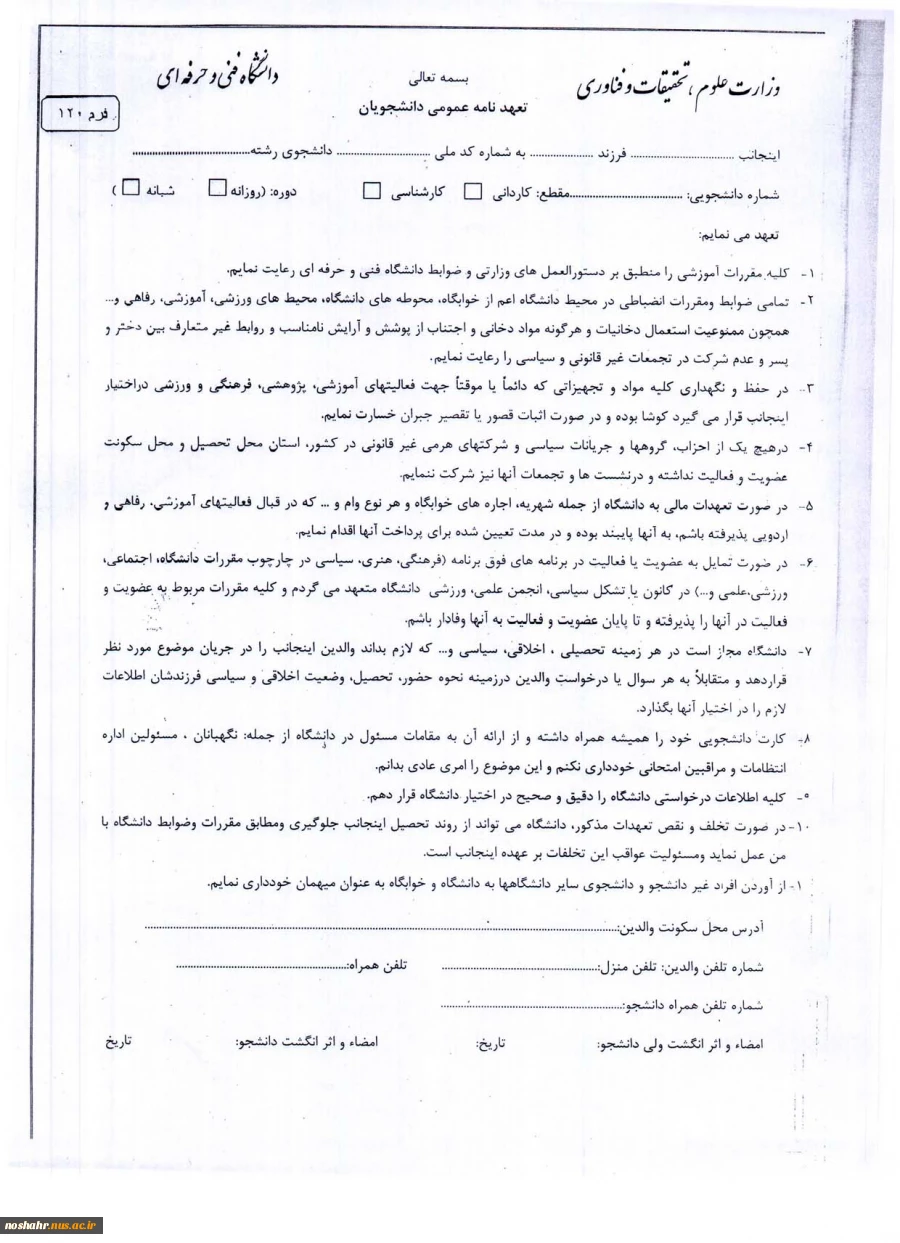 وزارت علوم ، تحقیقات و فناوری
بسمه تعالی
دانشگاه فنی و حرفه ای
تعهد نامه عمومی دانشجویان
فرم ۱۲۰
اینجانب ................................ فرزند .................... به شماره کد ملی ............................. دانشجوی رشته.....................................
شماره دانشجویی: ....................................مقطع: کاردانی □ کارشناسی □ دوره: (روزانه □ شبانه □ )
تعهد می نمایم:
۱- کلیه مقررات آموزشی را منطبق بر دستورالعمل های وزارتی و ضوابط دانشگاه فنی و حرفه ای رعایت نمایم.
۲- تمامی ضوابط ومقررات انضباطی در محیط دانشگاه اعم از خوابگاه، محوطه های دانشگاه، محیط های ورزشی، آموزشی، رفاهی و...
همچون ممنوعیت استعمال دخانیات و هرگونه مواد دخانی و اجتناب از پوشش و آرایش نامناسب و روابط غیر متعارف بین دختر و
پسر و عدم شرکت در تجمعات غیر قانونی و سیاسی را رعایت نمایم.
۳- در حفظ و نگهداری کلیه مواد و تجهیزاتی که دائماً یا موقتاً جهت فعالیتهای آموزشی، پژوهشی، فرهنگی و ورزشی دراختیار
اینجانب قرار می گیرد کوشا بوده و در صورت اثبات قصور یا تقصیر جبران خسارت نمایم.
۴- درهیچ یک از احزاب، گروهها و جریانات سیاسی و شرکتهای هرمی غیر قانونی در کشور، استان محل تحصیل و محل سکونت
عضویت و فعالیت نداشته و درنشست ها و تجمعات آنها نیز شرکت ننمایم.
۵- در صورت تعهدات مالی به دانشگاه از جمله شهریه، اجاره های خوابگاه و هر نوع وام و ... که در قبال فعالیتهای آموزشی، رفاهی و
اردویی پذیرفته باشم، به آنها پایبند بوده و در مدت تعیین شده برای پرداخت آنها اقدام نمایم.
۶- در صورت تمایل به عضویت یا فعالیت در برنامه های فوق برنامه (فرهنگی، هنری، سیاسی در چارچوب مقررات دانشگاه، اجتماعی،
ورزشی،علمی و...) در کانون یا تشکل سیاسی، انجمن علمی، ورزشی دانشگاه متعهد می گردم و کلیه مقررات مربوط به عضویت و
فعالیت در آنها را پذیرفته و تا پایان عضویت و فعالیت به آنها وفادار باشم.
۷- دانشگاه مجاز است در هر زمینه تحصیلی ، اخلاقی، سیاسی و... که لازم بداند والدین اینجانب را در جریان موضوع مورد نظر
قراردهد و متقابلاً به هر سوال یا درخواست والدین درزمینه نحوه حضور، تحصیل، وضعیت اخلاقی و سیاسی فرزندشان اطلاعات
لازم را در اختیار آنها بگذارد.
۸- کارت دانشجویی خود را همیشه همراه داشته و از ارائه آن به مقامات مسئول در دانشگاه از جمله: نگهبانان ، مسئولین اداره
انتظامات و مراقبین امتحانی خودداری نکنم و این موضوع را امری عادی بدانم.
- کلیه اطلاعات درخواستی دانشگاه را دقیق و صحیح در اختیار دانشگاه قرار دهم.
۱۰-در صورت تخلف و نقص تعهدات مذکور، دانشگاه می تواند از روند تحصیل اینجانب جلوگیری ومطابق مقررات وضوابط دانشگاه با
من عمل نماید ومسئولیت عواقب این تخلفات بر عهده اینجانب است.
۱- از آوردن افراد غیر دانشجو و دانشجوی سایر دانشگاهها به دانشگاه و خوابگاه به عنوان میهمان خودداری نمایم.
آدرس محل سکونت والدین:....................................................................................................
شماره تلفن والدین: تلفن منزل:............................................ تلفن همراه:................................................
شماره تلفن همراه دانشجو:...................................................
امضاء و اثر انگشت ولی دانشجو: تاریخ: امضاء و اثر انگشت دانشجو: تاریخ
noshahr.nus.ac.ir